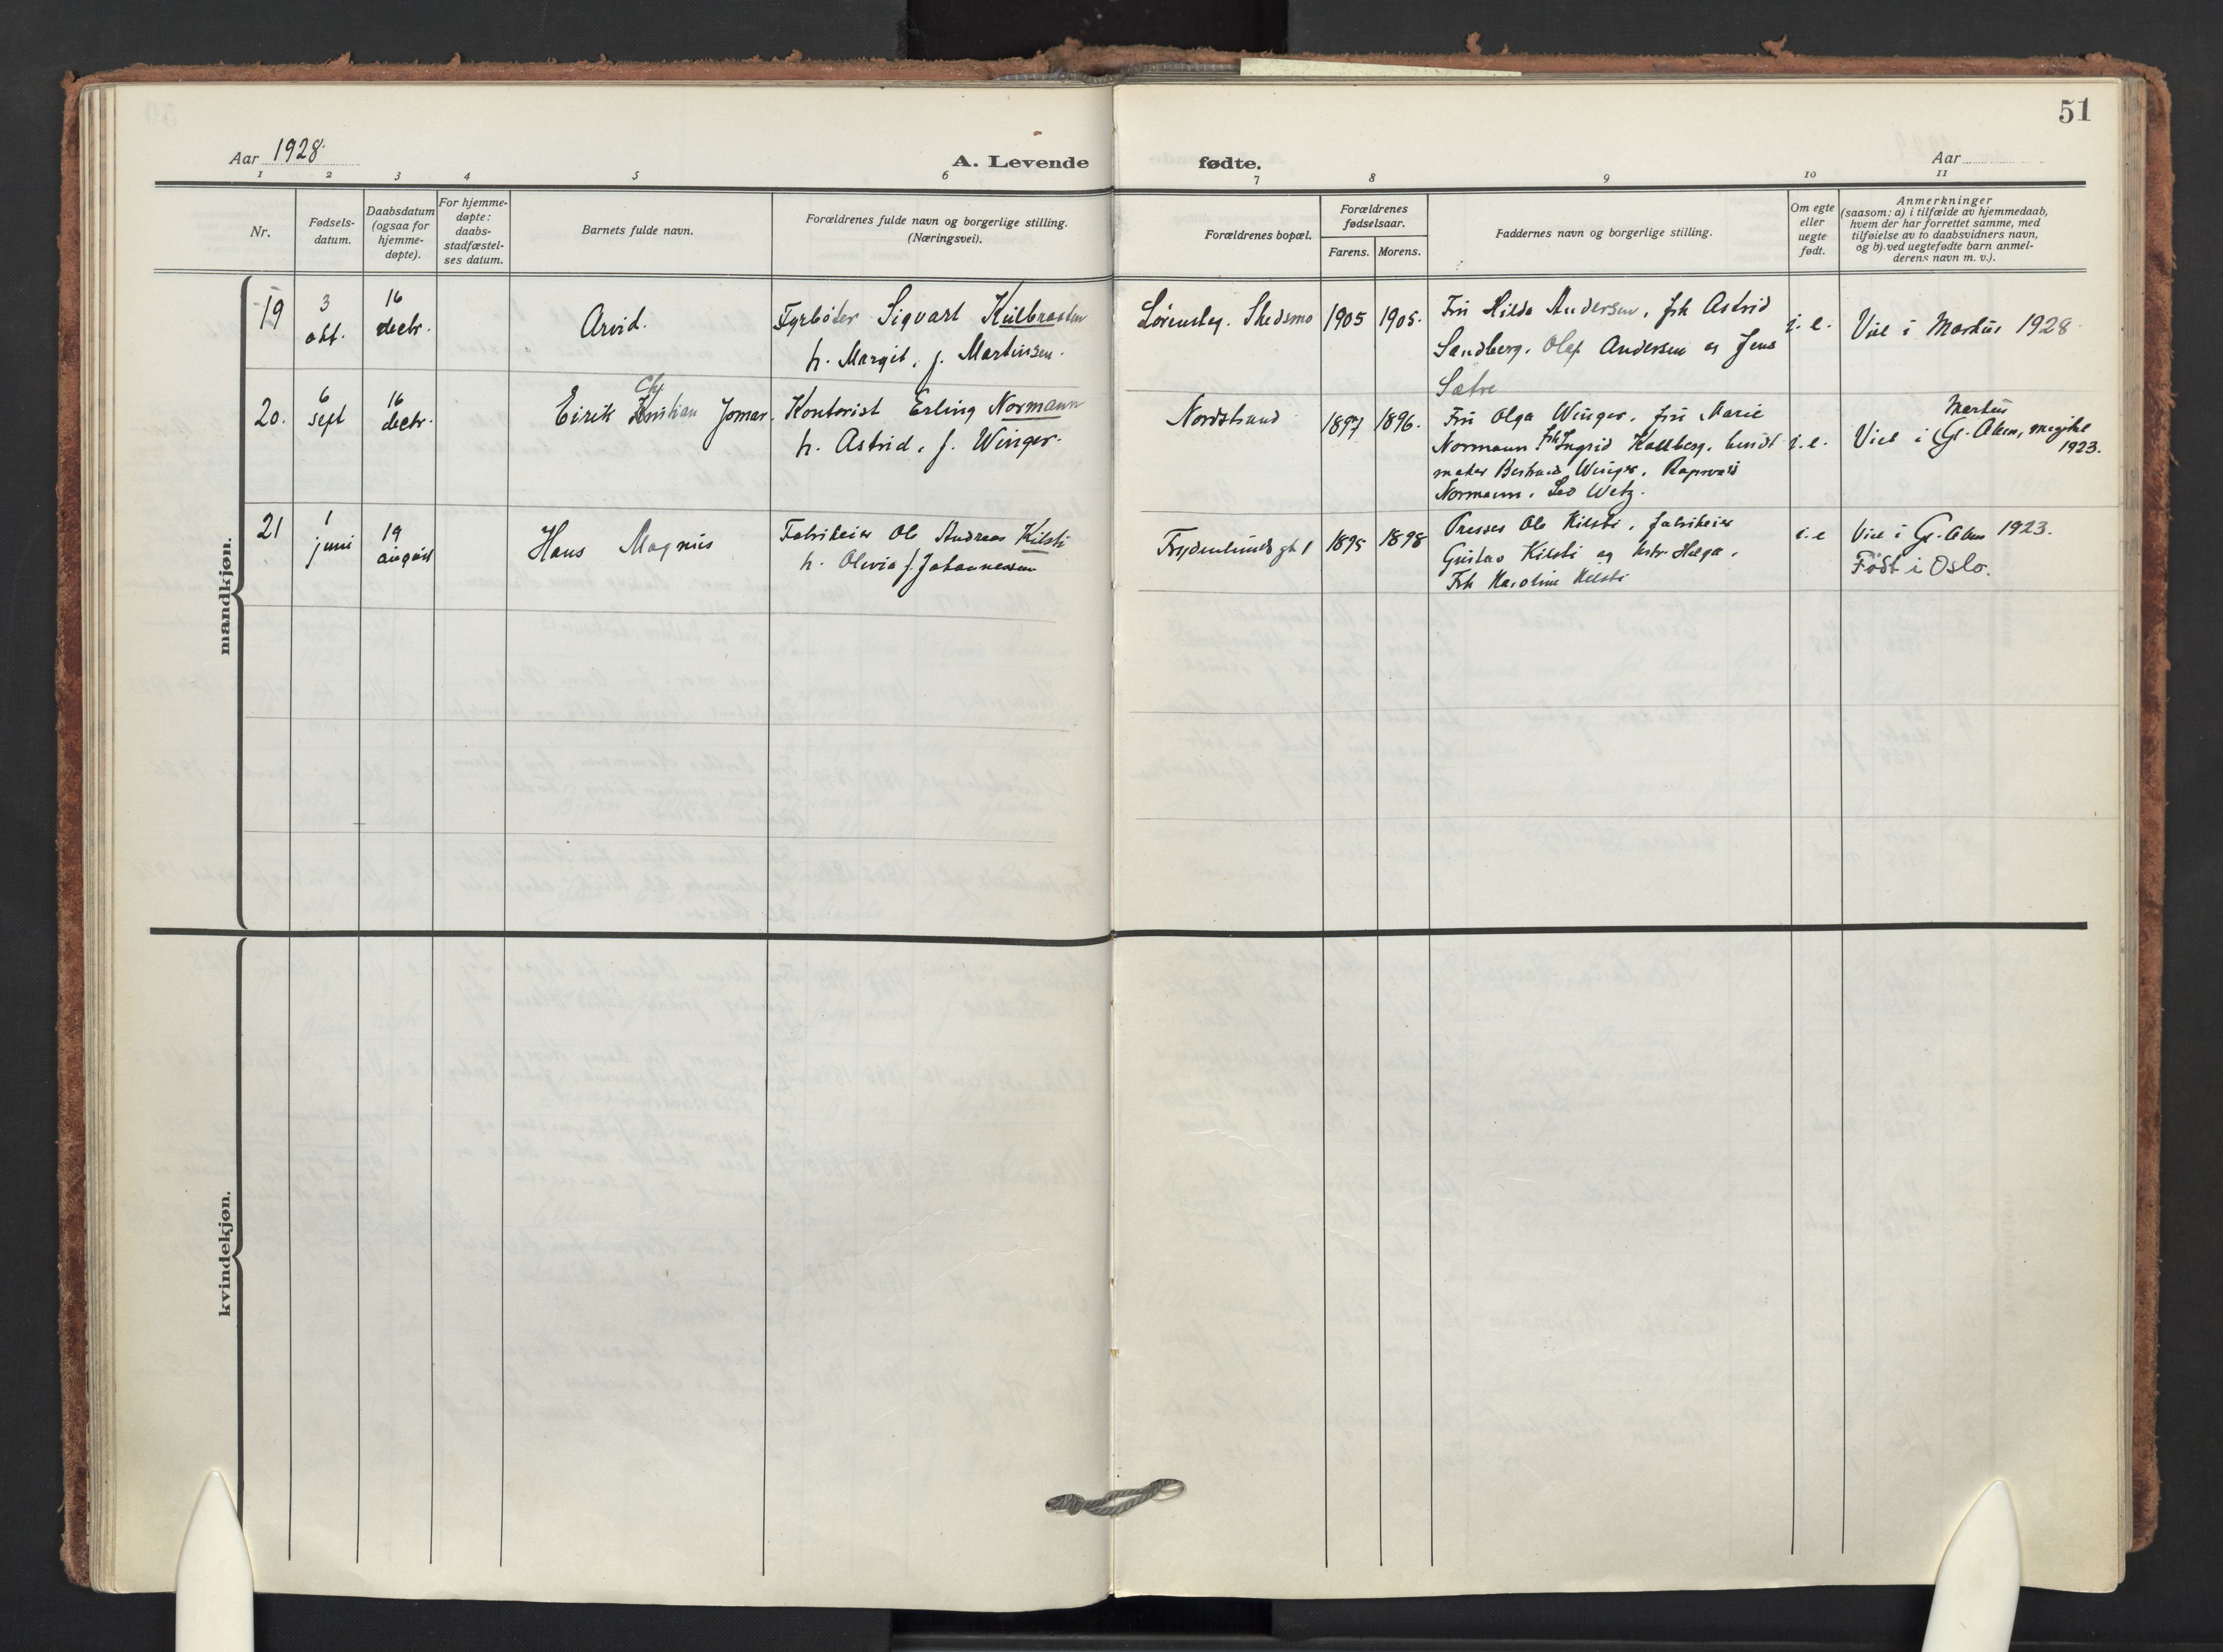 51
Aar 1928.
A. Levende fødte.
Aar
1 2 3 4 5 6 7 8 9 10 11
Nr.
Fødsels-
datum.
Daabsdatum
(ogsaa for
hjemme-
døpte).
For hjemme-
døpte:
daabs-
stadfæstel-
ses datum.
Barnets fulde navn.
Forældrenes fulde navn og borgerlige stilling.
(Næringsvei).
Forældrenes bopæl.
Forældrenes
fødselsaar.
Farens. Morens.
Faddernes navn og borgerlige stilling.
Om egte
eller
uegte
født.
Anmerkninger
(saasom: a) i tilfælde av hjemmedaab,
hvem der har forrettet samme, med
tilføielse av to daabsvidners navn,
og b) ved uegtefødte barn anmel-
derens navn m. v.).
mandkjøn.
19
3
okt.
16
decbr.
Arvid.
Fyrbøter Sigvart Kulbraaten
h. Margit, f. Martinsen.
Skedsmo
1905
1905.
Fru Hilda Andersen, frk Astrid
Sandberg, Olaf Andersen og Jens
Sætre
i. e.
Viet i Markus 1928
20.
6
sept
16
decbr.
Ch
Eirik Kristian Jomar.
Kontorist Erling Normann
h. Astrid, f. Winger.
Nordstrand
1897
1896.
Fru Olga Winger, fru Marie
Normann, frk Ingrid Kallberg, kunst
maler Winger,
Normann, Leo Wetz.
i. e.
Markus
Viet i Gl. Aker, menighet
1923.
21
1
juni
19
august
Hans Magnus
Fabrikeier Ole Andreas Kilsti
h. Olivia f. Johannessen
Frydenlunds gt 1
1895
1898
Presser Ole Kilsti, fabrikeier
Gustav Kilsti og hstr. Helga,
Frk Karoline Kilsti
i. e
Viet i Gl. Aker 1923.
Født i Oslo.
kvindekjøn.